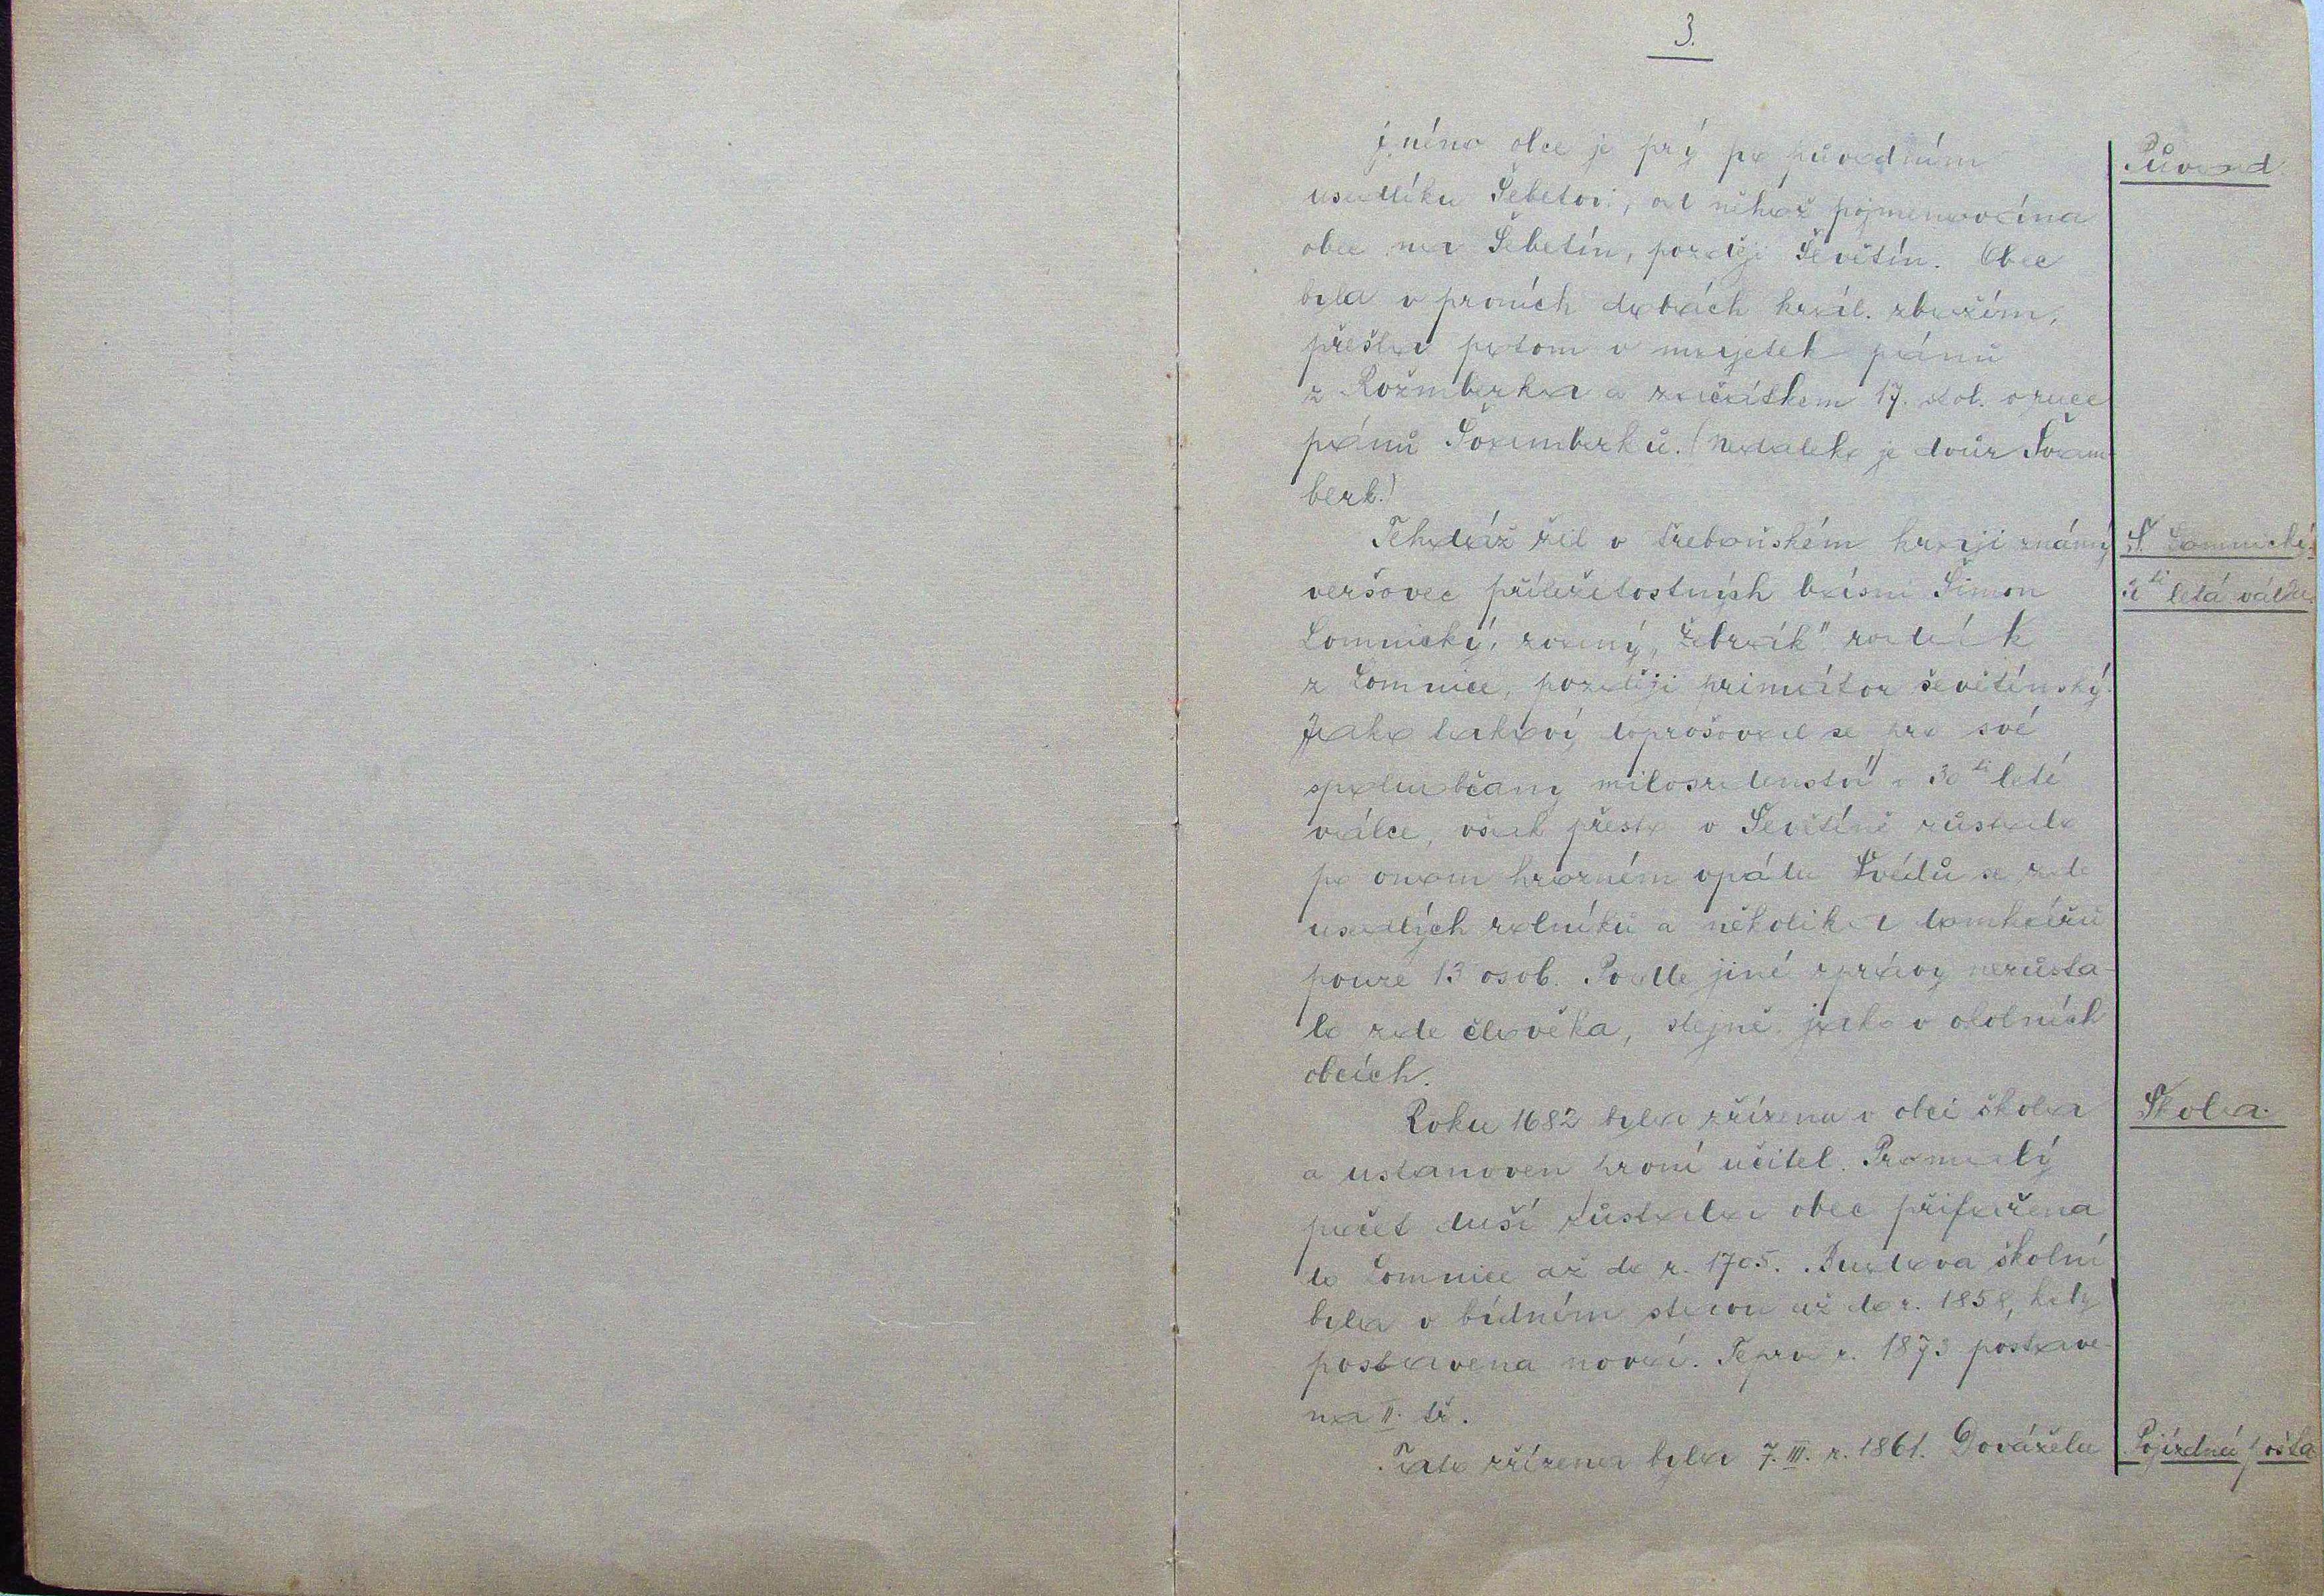 3.
Jméno obce je prý po původním
usedlíku Šebetovi, od něhož pojmenována
obec na Šebetín, později Ševětín. Obec
byla v prvních dobách král. zbožím,
přešla potom v majetek pánů
z Rožmberka a začátkem 17. stol. v ruce
pánů Švamberků. (Nedaleko je dvůr Švam-
berk.)
Původ
Tehdáž žil v třeboňském kraji známý
veršovec příležitostných básní Šimon
Lomnický, zvaný „Žebrák" rodák
z Lomnice, později primátor ševětínský.
Jako takový doprošoval se pro své
spoluobčany milosrdenství v 30 ti leté
válce, však přesto v Ševětíně zůstalo
po onom hrozném vpádu Švédů ze zde
usedlých rolníků a několika domkářů
pouze 13 osob. Podle jiné zprávy nezůsta-
lo zde člověka, stejně jako v okolních
obcích.
Š. Lomnický.
30 ti letá válka
Roku 1682 byla zřízena v obci škola
a ustanoven první učitel. Pro malý
počet duší zůstala obec přifařena
do Lomnice až do r. 1705. Budova školní
byla v bídném stavu až do r. 1858, kdy
postavena nová. Teprv r. 1873 postave-
na II. tř.
Škola.
Tato zřízena byla 7. III. r. 1861. Dovážela
Pojízdná pošta